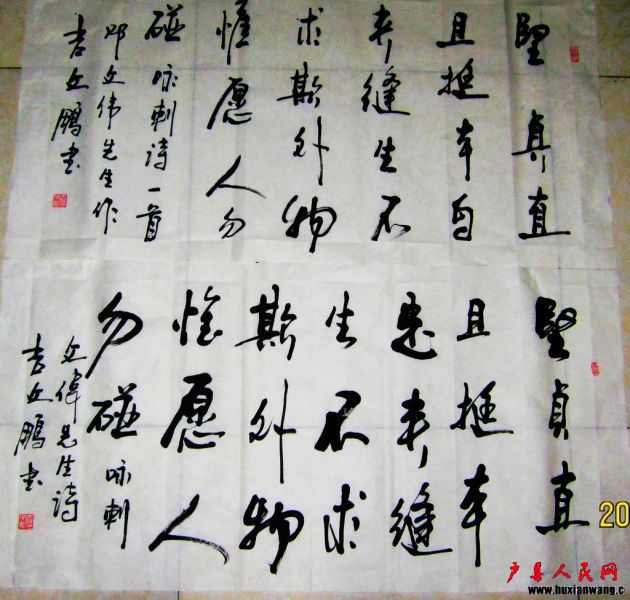 堅真直
且挺本自
夹缝生不
求斯外物
惟愿人勿
碰 咏刺诗一首
邓文伟先生作
吉文鹏书
堅贞直
且挺本
是夹缝
生不求
斯外物
惟愿人
勿碰 咏刺
文偉先生诗
吉文鹏书
20
户县人民网
www.huxianwang.c